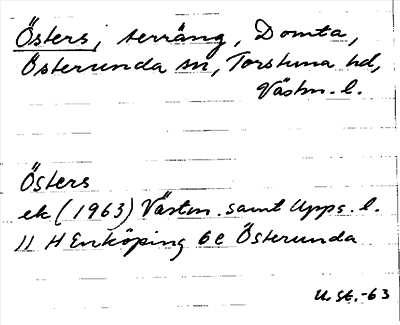 Östers, terräng, Domta,
Österunda sn, Torstuna hd,
Västm. l.
Östers
ek (1963) Västm. samt Upps. l.
11 H Enköping 6 e Österunda
U. St. -63